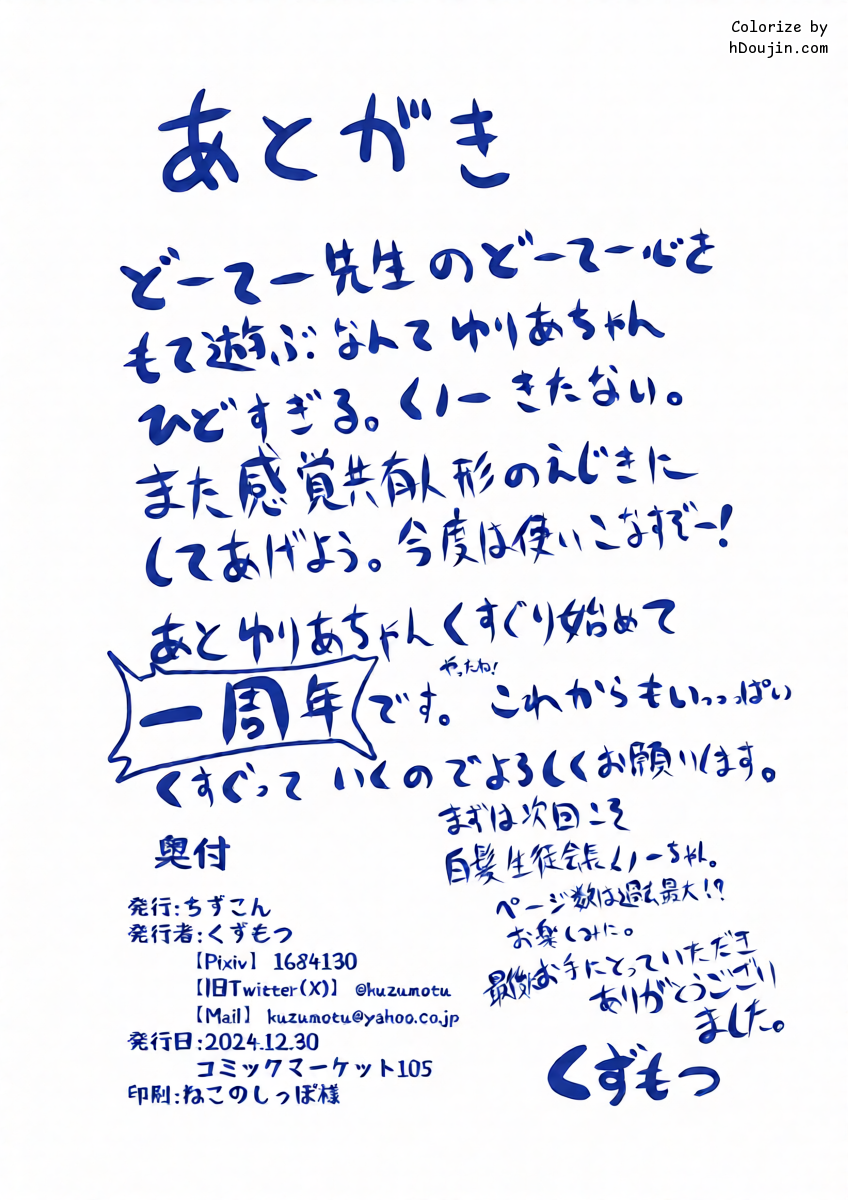 Colorize by
hDoujin.com
あとがき
どーてー先生のどーてー心を
もて遊ぶなんてゆりあちゃん
ひどすぎる。くノ一きたない。
また感覚共有人形のえじきに
してあげよう。今度は使いこなすぞー!
あとゆりあちゃんくすぐり始めて
やったね!
一周年です。これからもいっっっぱい
くすぐっていくのでよろしくお願いします。
まずは次回こそ
白髪生徒会長くノ一ちゃん。
ページ数は過去最大!?
お楽しみに。
最後にお手にとっていただき
ありがとうござり
ました。
くずもつ
奥付
発行:ちずこん
発行者:くずもつ
【Pixiv】 1684130
【旧Twitter(X)】 @kuzumotu
【Mail】 kuzumotu@yahoo.co.jp
発行日:2024.12.30
コミックマーケット105
印刷:ねこのしっぽ様